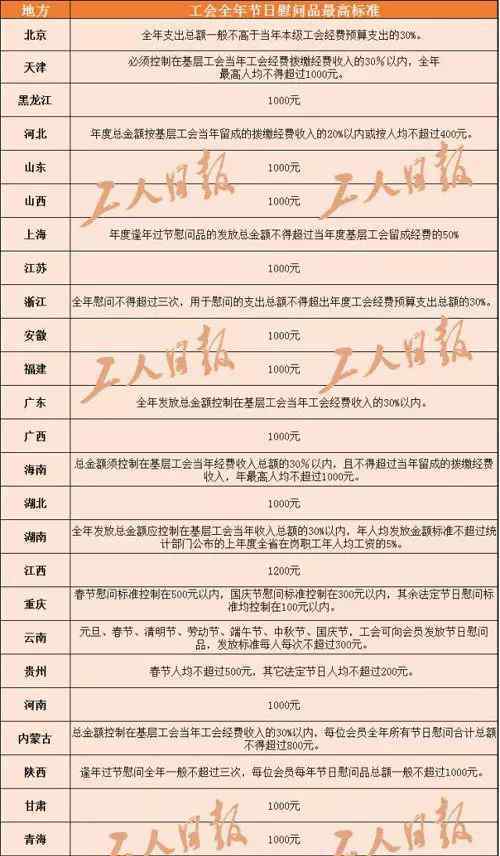 地方 工会全年节日慰问品最高标准
北京 全年支出总额一般不高于当年本级工会经费预算支出的30%。
天津 必须控制在基层工会当年工会经费拨缴经费收入的30%以内，全年
最高人均不得超过1000元。
黑龙江 1000元
河北 年度总金额按基层工会当年留成的拨缴经费收入的20%以内或按人均不超过400元。
山东 1000元
工人日报 工人日报
山西 1000元
上海 年度逢年过节慰问品的发放总金额不得超过当年度基层工会留成经费的50%
江苏 1000元
浙江 全年慰问不得超过三次，用于慰问的支出总额不得超出年度工会经费预算支出总额的30%。
安徽 1000元
工人日报 工人日报
福建 1000元
广东 全年发放总金额控制在基层工会当年工会经费收入的30%以内。
广西 1000元
海南 总金额须控制在基层工会当年经费收入总额的30%以内，且不得超过当年留成的拨缴经费
收入，年最高人均不超过1000元。
湖北 1000元
湖南 全年发放总金额应控制在基层工会当年收入总额的30%以内，年人均发放金额标准不超过统
计部门公布的上年度全省在岗职工年人均工资的5%。
江西 1200元
重庆 春节慰问标准控制在500元以内，国庆节慰问标准控制在300元以内，其余法定节日慰问标
准均控制在100元以内。
云南 元旦、春节、清明节、劳动节、端午节、中秋节、国庆节，工会可向会员发放节日慰问
品，发放标准每人每次不超过300元。
贵州 春节人均不超过500元，其它法定节日人均不超过200元。
河南 1000元
内蒙古 总金额控制在基层工会当年工会经费收入的30%以内，每位会员全年所有节日慰问合计总额
不得超过800元。
陕西 逢年过节慰问全年一般不超过三次，每位会员每年节日慰问品总额一般不超过1000元。
甘肃 1000元
工人日报 工人日报
青海 1000元